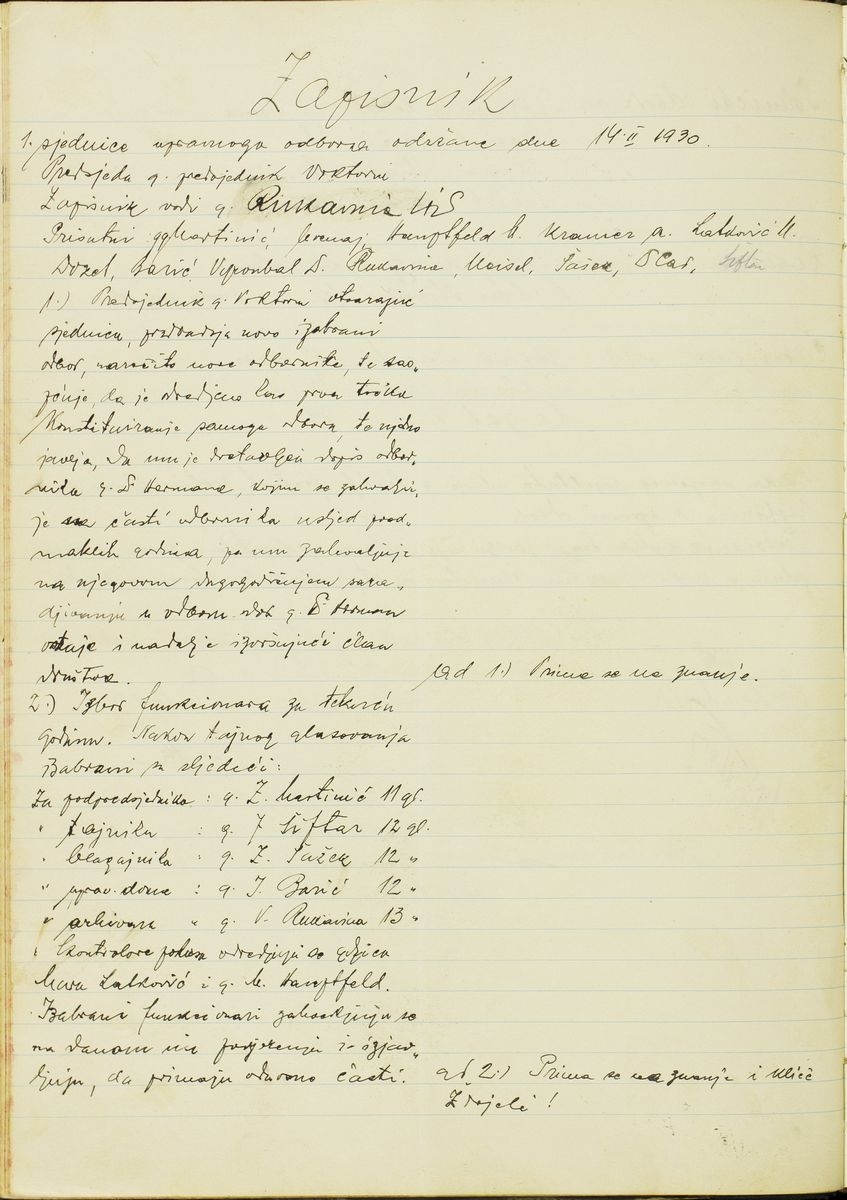 Zapisnik
1. sjednice upravnoga odbora održane dne 14. II 1930.
Predsjeda g. predsjednik Vrktorin
Zapisnik vodi g. Rukavina
Prisutni gg Martinić, Hauptfeld M. Kramer A. Latković M.
Dozet, Barić, Vyroubal D. Rukavina, Meisel, Sažek, Šiftar
1.) Predsjednik g. otvarajući
sjednicu, pozdravlja novo izabrani
odbor, naročito nove odbornike, te sao„
pćuje, da je odredjena kao prva točka
Konstituiranje samoga odbora, te ujedno
javlja, da mu je dostavljen dopis odbor„
nika g. D Hermana, kojim se zahvalju„
je na časti odbornika usljed pood„
maklih godina, pa mu zahvaljuje
na njegovom dugogodišnjem sara„
djivanju u odboru. g. Herman
ostaje i nadalje izvršujući član
društva.
Ad 1.) Prima se na znanje.
2.) Izbor funkcionara za tekuću
godinu. Nakon tajnog glasovanja
Izabrani su sljedeći:
Za podpredsjednika : g. Z. Martinić 11 gl.
" tajnika : g. J Šiftar 12 gl.
" blagajnika : g. Z. Sažek 12 "
" uprav. doma : g. I. Barić 12 "
" arhivara " g. V. Rukavina 13 "
" kontrolore odredjuju se gdjica
Mara Latković i g. M. Hauptfeld.
Izabrani funkcionari zahvaljuju se
na danom im povjerenju i izjav„
ljuju, da primaju odnosne časti.
ad 2.) Prima se na znanje i kliče
Živjeli!